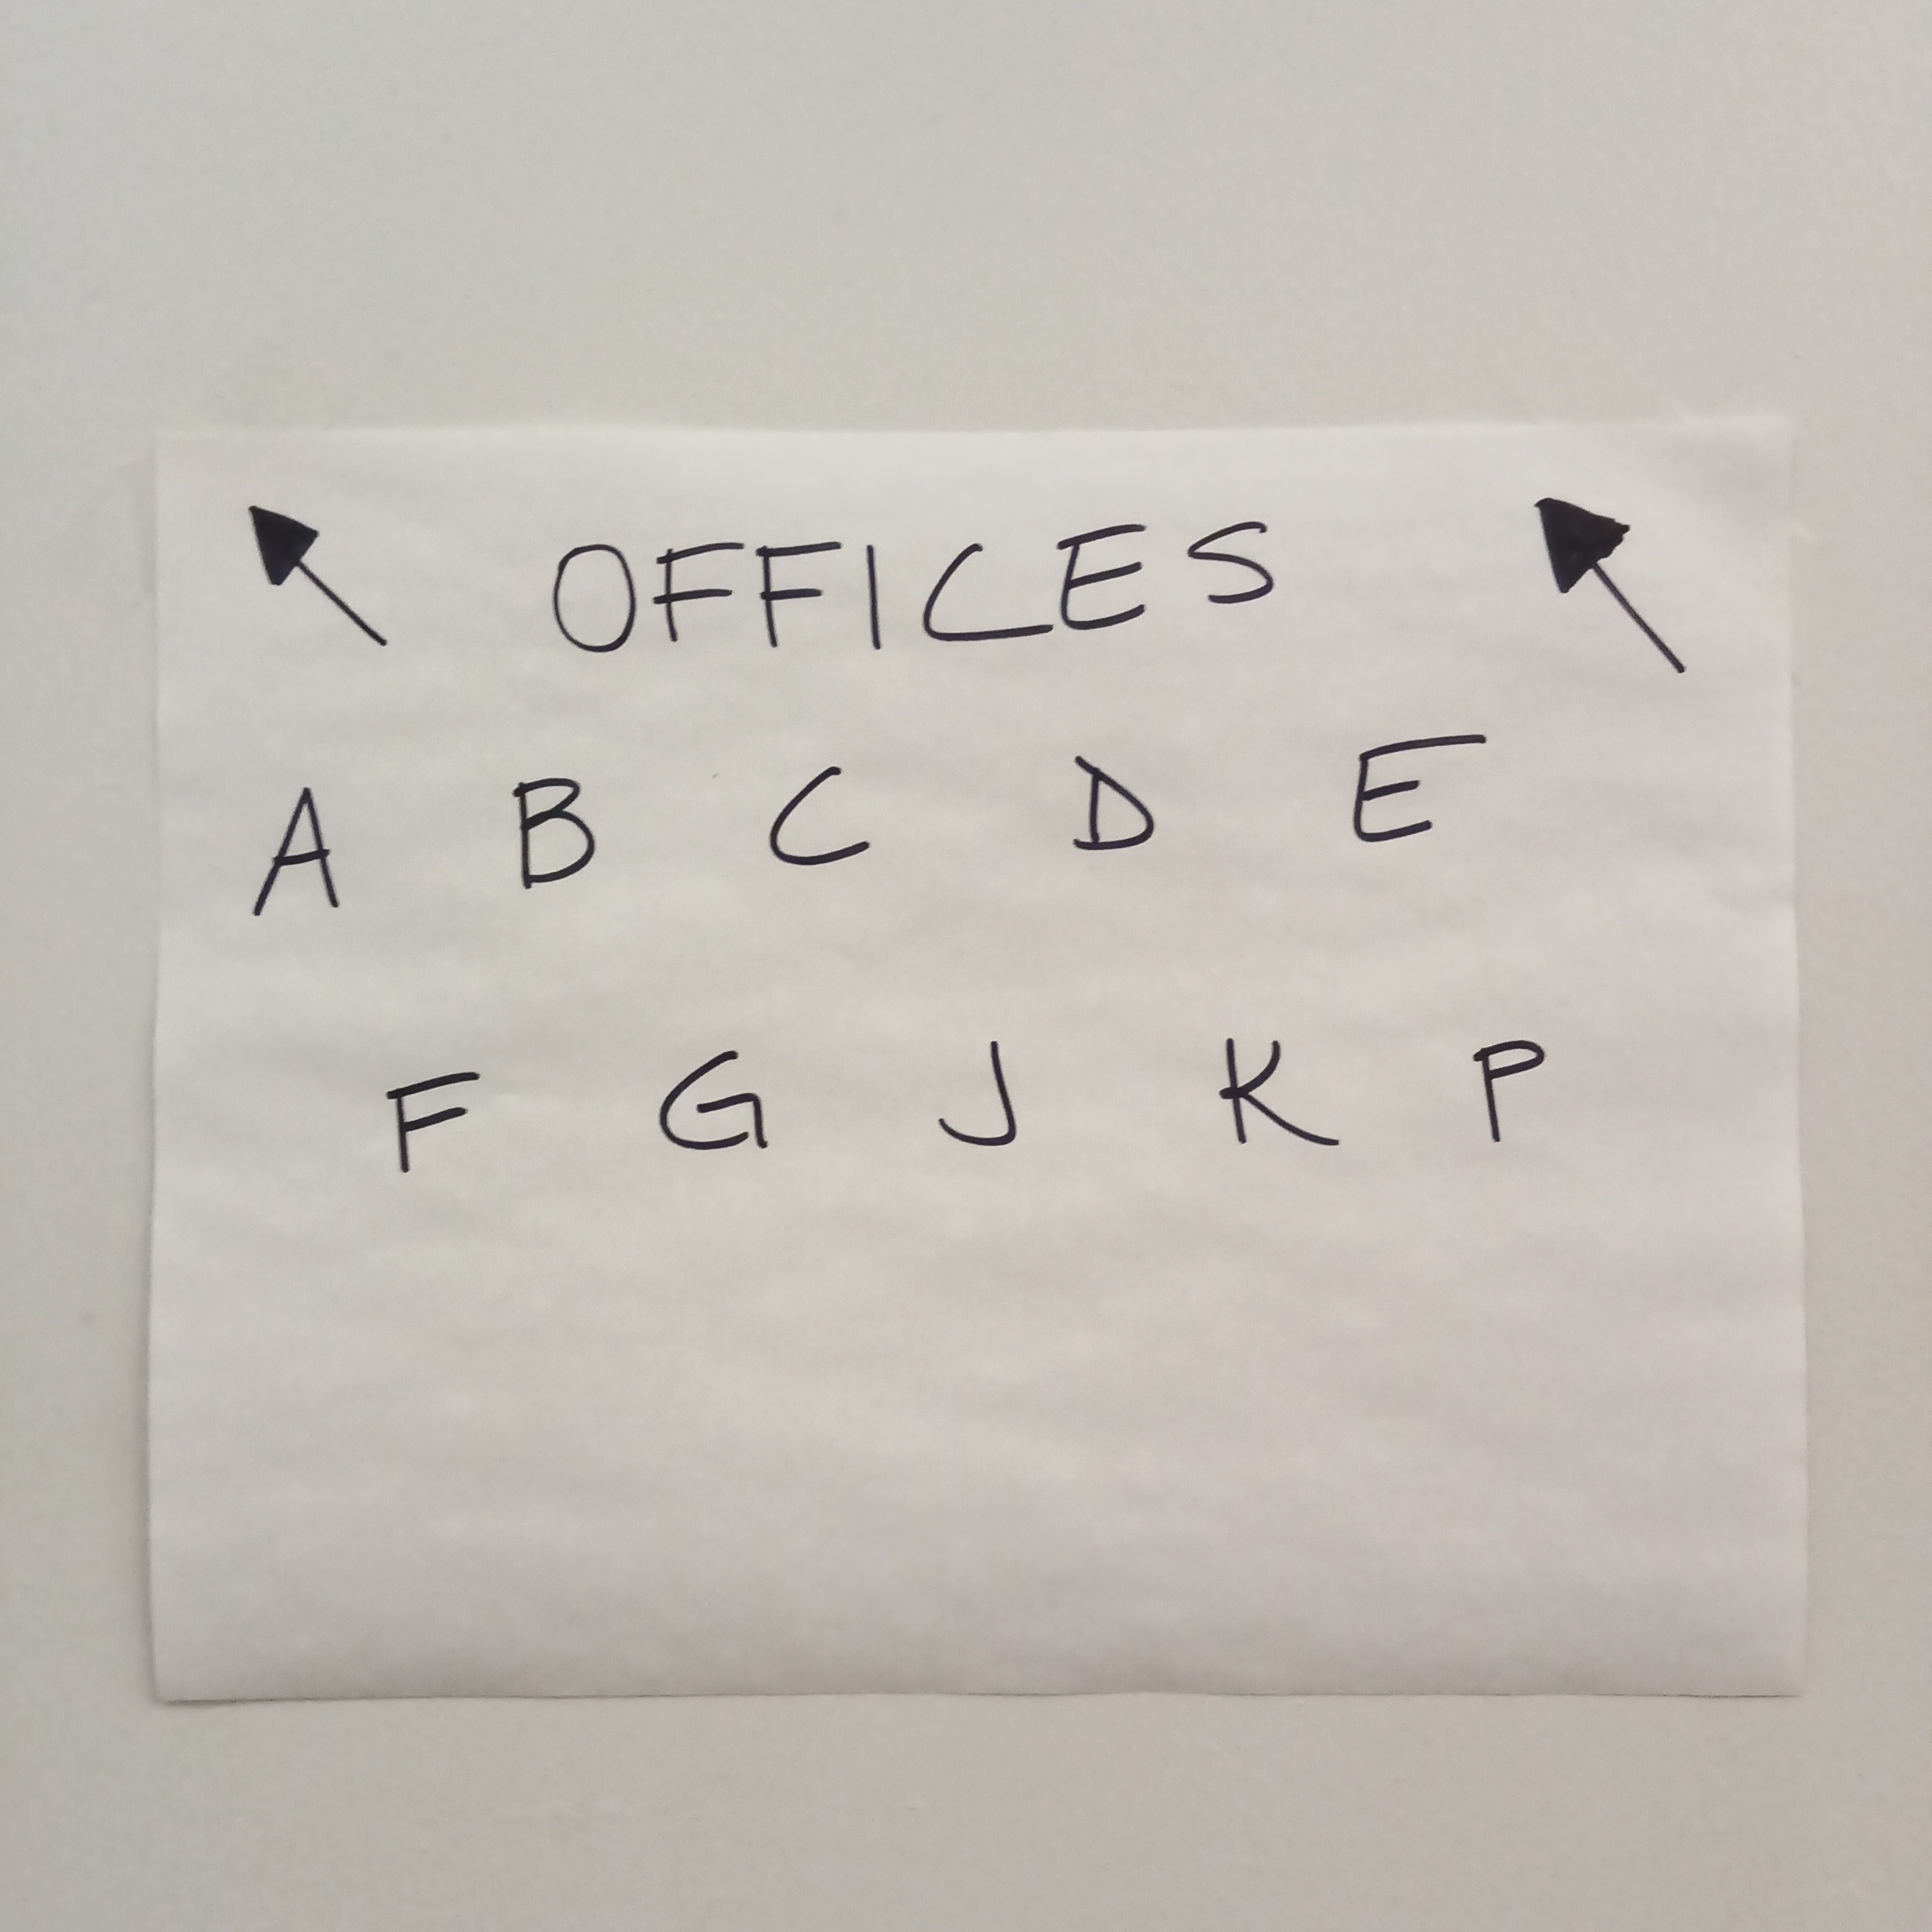 OFFICES
A B C D E
F G J K P